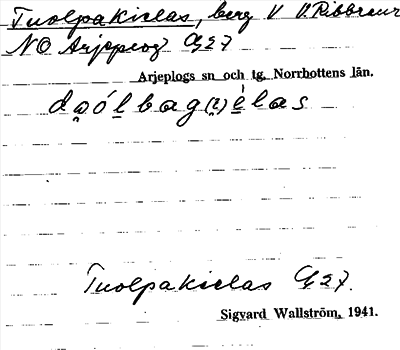 Tuolpakielas, berg V V. Ribbraur
NO Arjeplog G27
Arjeplogs sn och tg, Norrbottens län.
dạọ́l̲bag(ị)é̲las
Tuolpakielas G27.
Sigvard Wallström, 1941.